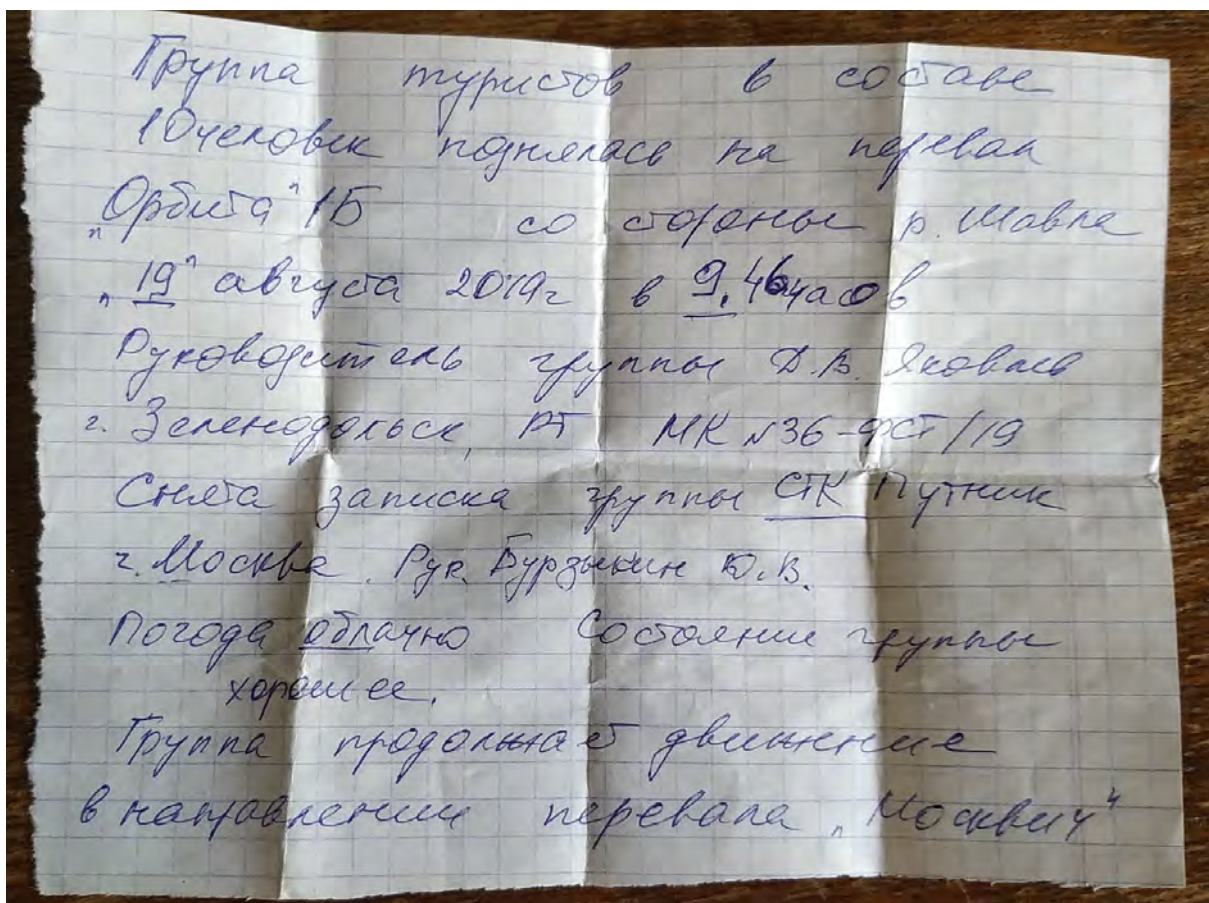 Группа туристов в составе
10человек поднялась на перевал
"Орбита" 1Б со стороны р. Шавла
"19" августа 2019г в 9.46часов
Руководитель группы Д.В. Яковлев
г. Зеленодольск, РТ МК №36-ФСТ/19
Снята записка группы СТК Путник
г. Москва. Рук. Бурзыкин Ю.В.
Погода облачно Состояние группы
хорошее.
Группа продолжает движение
в направлении перевала "Москвич"